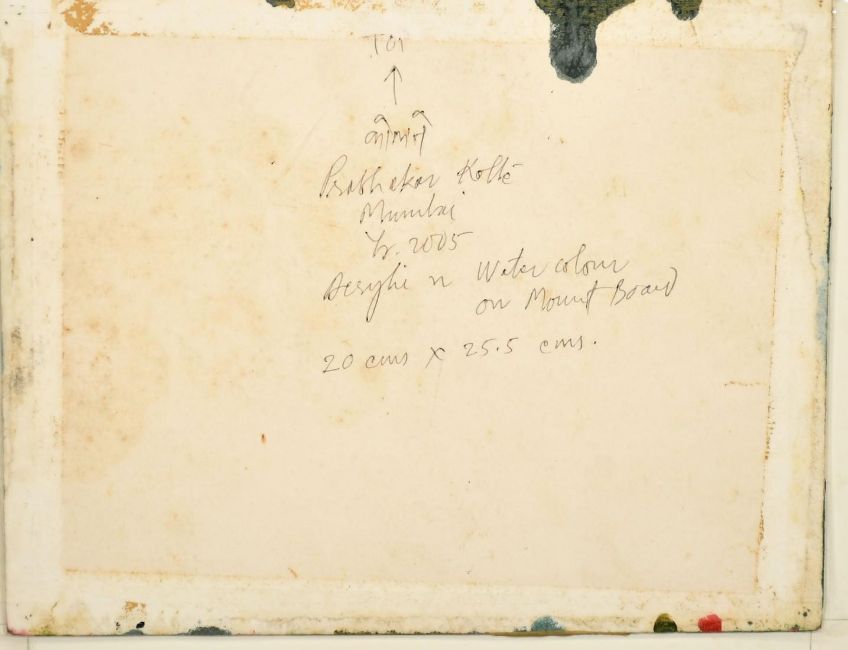 TOP
↑
कोलते
Prabhakar Kolte
Mumbai
Yr. 2005
Acrylic n Water colour
on Mount Board
20 cms x 25.5 cms.